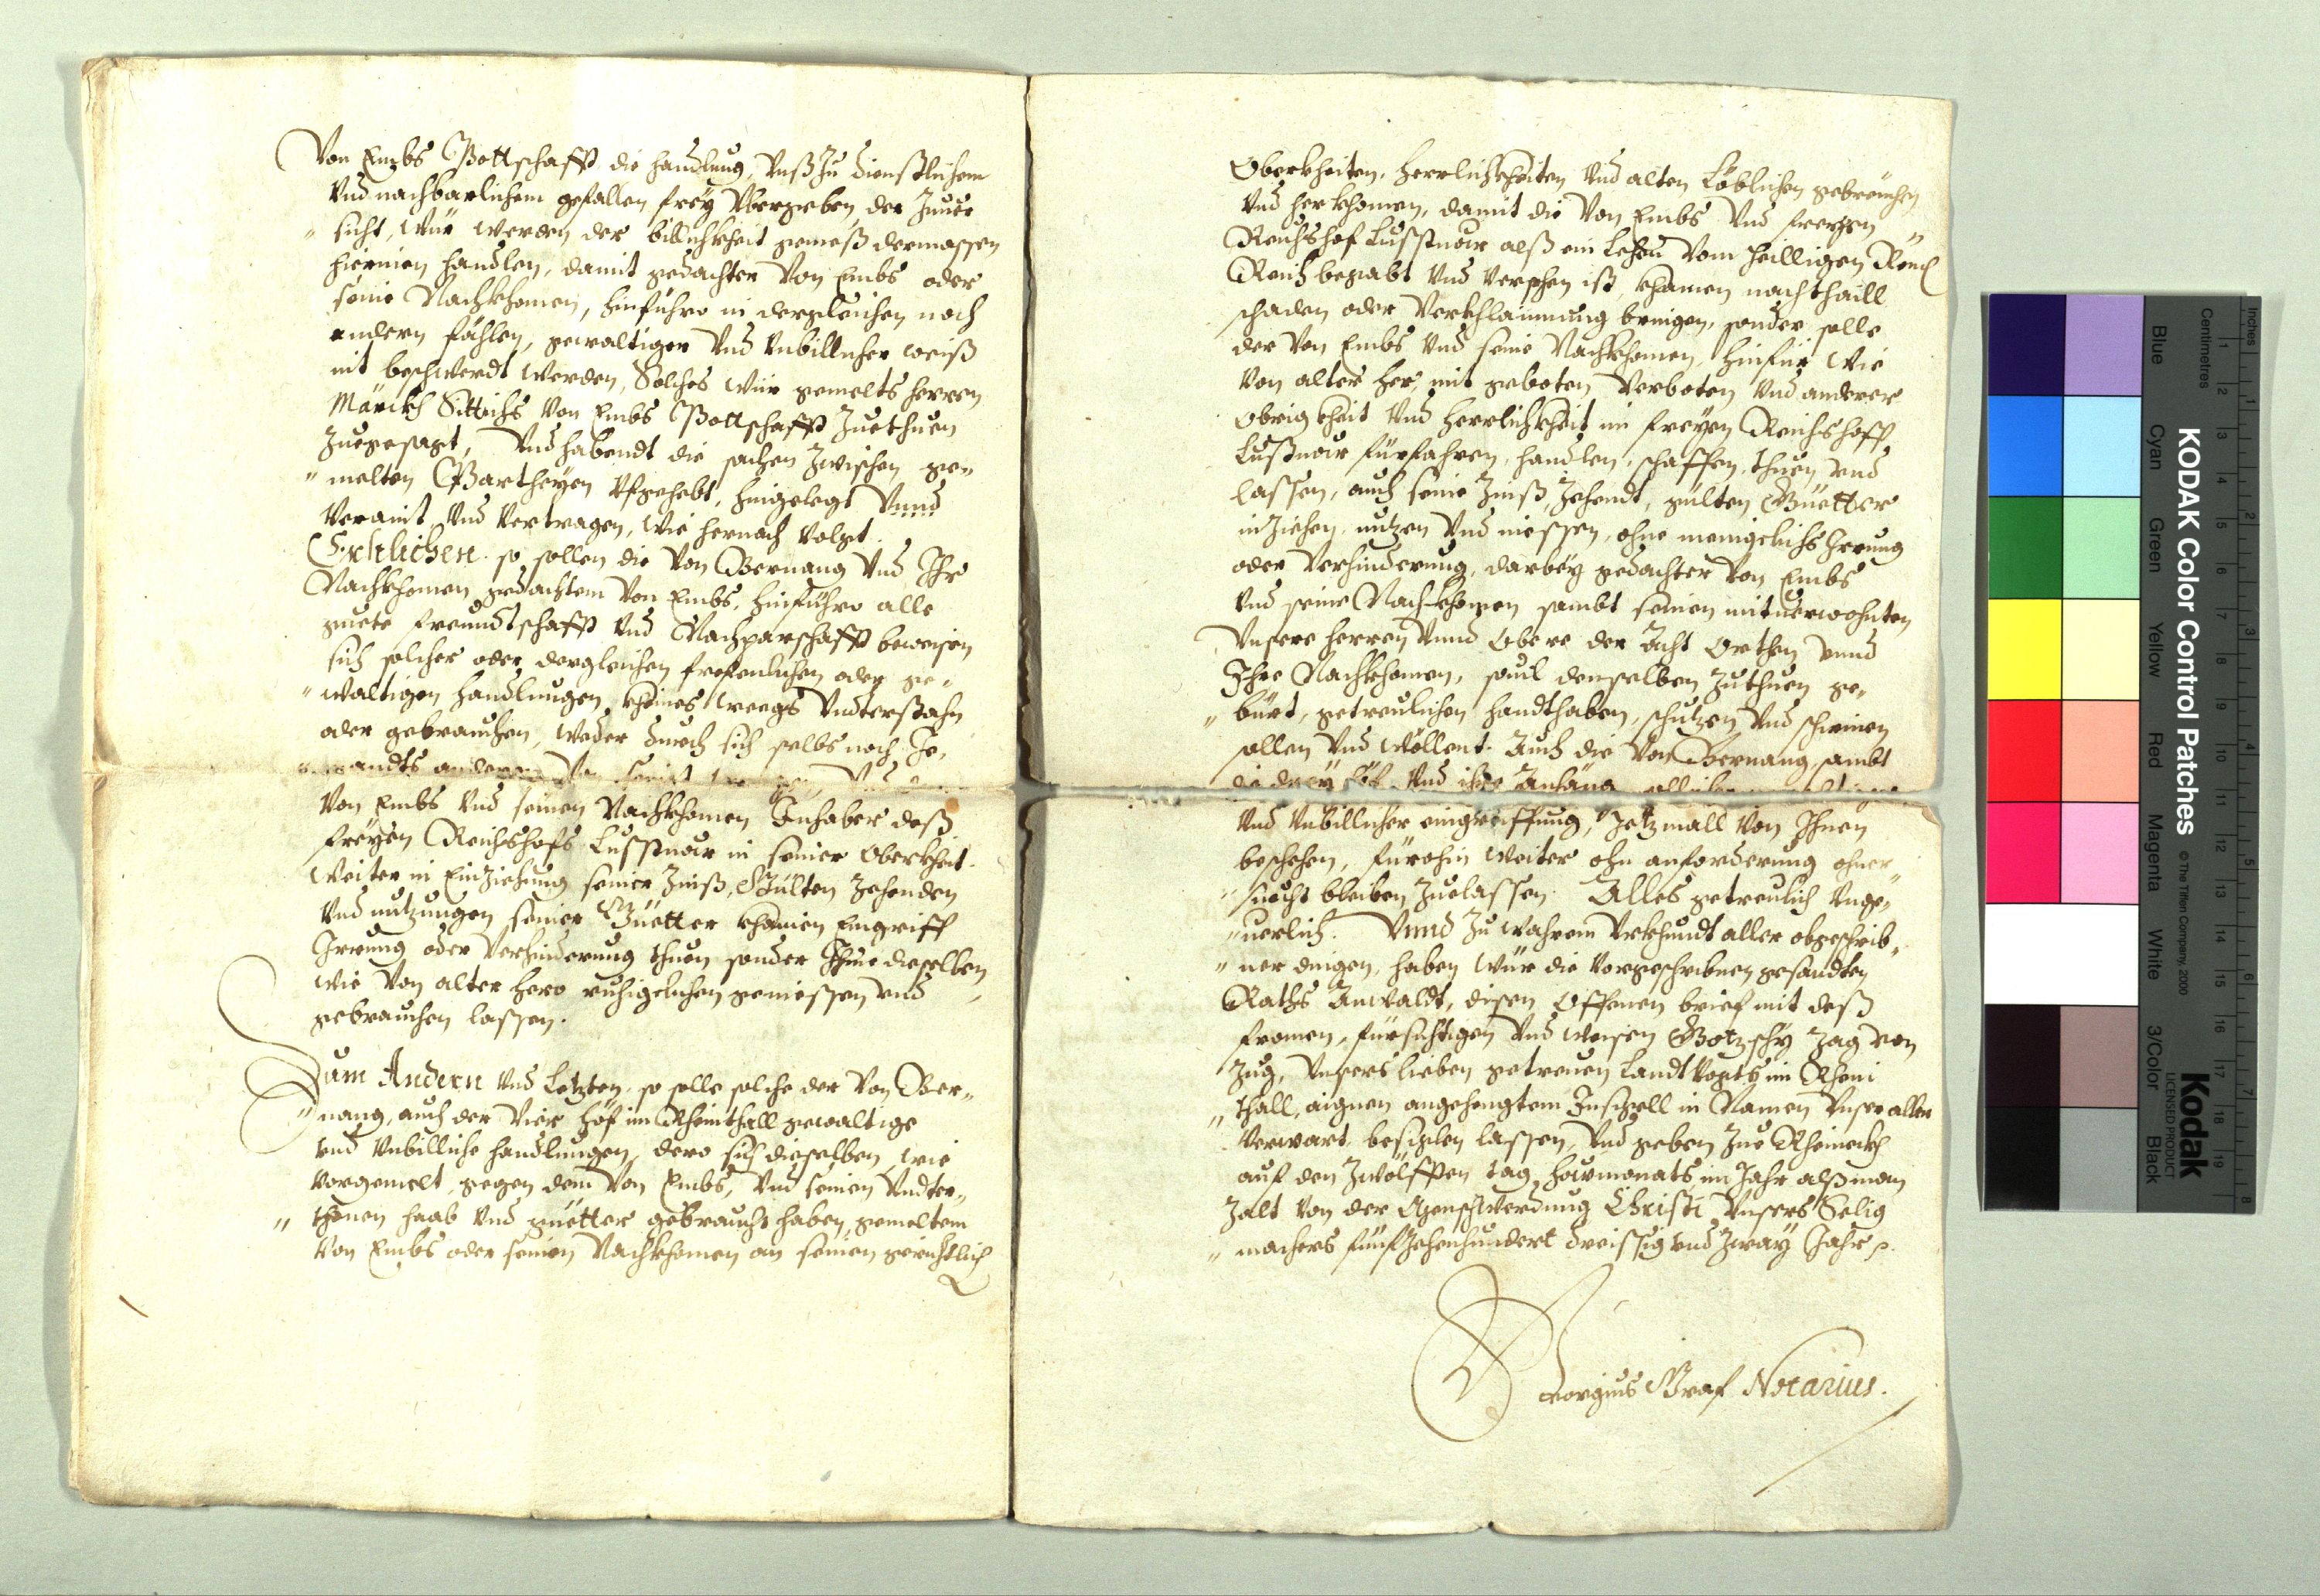 Von Embs Bottschafft die handlung, Vnß zu dienstlichem
Vnd nachbarlichem gefallen frey Vbergeben, der Zuuer
" sicht, Wür werden der billichkheit gemeß dermassen
hierinen handlen, damit gedachter Von Embs oder
seine Nachkhomen, hinführo in dergleichen noch
andern fählen, gewaltiger Vnd Vnbillicher weiß
nit beschwerdt werden, Solches wür gemelts herren
Märckh Sittichs Von Embs Bottschafft Zuethuen
Zuegesagt, Vnd habendt die sachen Zwischen ge-
" melten Partheyen Vfgehebt, hingelegt Vnnd
Veraint, Vnd Vertragen, Wie hernach Volgt.
Erstlichen. so sollen die Von Bernang Vnd Ihr
Nachkhomen gedachtem Von Embs, hinführo alle
guete freundtschafft Vnd Nachparschafft beweisen
sich solcher oder dergleichen frefenlichen oder ge-
" waltigen handlungen, kheines weegs Vnderstahn
oder gebrauchen, weder durch sich selbs noch Je,
mandts anderen
Von Embs Vnd seinen Nachkhomen Inhaber deß
freyen Reichshofs Lusstnow in seiner Oberkheit.
Weiter in Einziehung seiner Zinß, Gülten Zehenden
Vnd nutzungen seiner Güetter khainen Eingriff
Irrung oder Verhinderung thuen sonder Ihme dieselben
wie Von alter hero ruhigelichen geniessen vnd
gebrauchen lassen.
Zum Andern Vnd Letzten, so solle solche der Von Ber-
" nang, auch der Vier höf im Rheinthall gewaltige
vnd Vnbilliche handlungen, dero sich dieselben, wie
Vorgemelt, gegen dem Von Embs, Vnd seinen Vndter-
" thonen haab Vnd güetter gebraucht haben, gemeltem
Von Embs oder seinen Nachkhomen an seinen gerichtlich
Oberkheiten, herrlichkheiten Vnd alten Löblichen gebreuchen
Vnd herkhomen, damit die Von Embs Vnd freyen "
Reichshof Lusstnow alß ein Lehen Vom heilligen Röm
Reich begabt Vnd Versehen ist, khainen nachthaill
schaden oder Verkhlainnung bringen, sonder solle
der Von Embs Vnd seine Nachkhomen, hinfür wie
Von alter her, mit geboten, Verboten Vnd anderer
Obrigkheit Vnd herrlichkheit im freyen Reichshoff
Lustnow fürfahren, handlen, schaffen, thuen, vnd
lassen, auch seine Zinß, Zehendt, gülten Güetter
inziehen, nutzen Vnd niessen, ohne menigelichs Irrung
oder Verhinderung, darbey gedachter Von Embs
Vnd seine Nachkhomen sambt seinen mituerwohnten
Vnsere herren Vnnd Obere der Acht Orthen vnnd
Ihre Nachkhomen, souil denselben Zuthuen ge-
" bürt, getreulichen handthaben, schutzen Vnd schirmen
sollen Vnd wöllent. Auch die Von Bernang, sambt
die drey höf Vnd ihre Anhäng
Vnd Vnbillicher eingreiffung, Jetzmall Von Ihnen
beschehen, fürohin weiter ohn anforderung ohner-
" suecht bleiben Zuelassen. Alles getreulich Vnge-
" uerlich. Vnnd Zu wahrem Vrkhundt aller obgeschrib-
" ner dingen, haben wür die Vorgeschribnen gesandten
Raths Anwaldt, disen Offenen brief mit deß
fromen, fürsichtigen Vnd weisen Gotzschy Zag von
Zug, Vnsers lieben getreuen Landt Vogts im Rhein
" thall, aignen angehengtem Insigell in Namen Vnser aller
Verwart, besiglen lassen, Vnd geben Zue Rheineckh
auf den Zwölfften tag howmonats, im Jahr alß man
Zalt Von der Menschwerdung Christi Vnsers Selig
" machers fünffzehenhundert dreissig vnd Zway Jahr p.
Georgius Graf Notarius.
KODAK Color Control Patches
© The Tiffen Company, 2000
Kodak
LICENSED PRODUCT
Inches
Centimetres
1 2 3 4 5 6 7 8 9 10 11 12 13 14 15 16 17 18 19
1 2 3 4 5 6 7 8
Blue Cyan Green Yellow Red Magenta White 3/Color Black